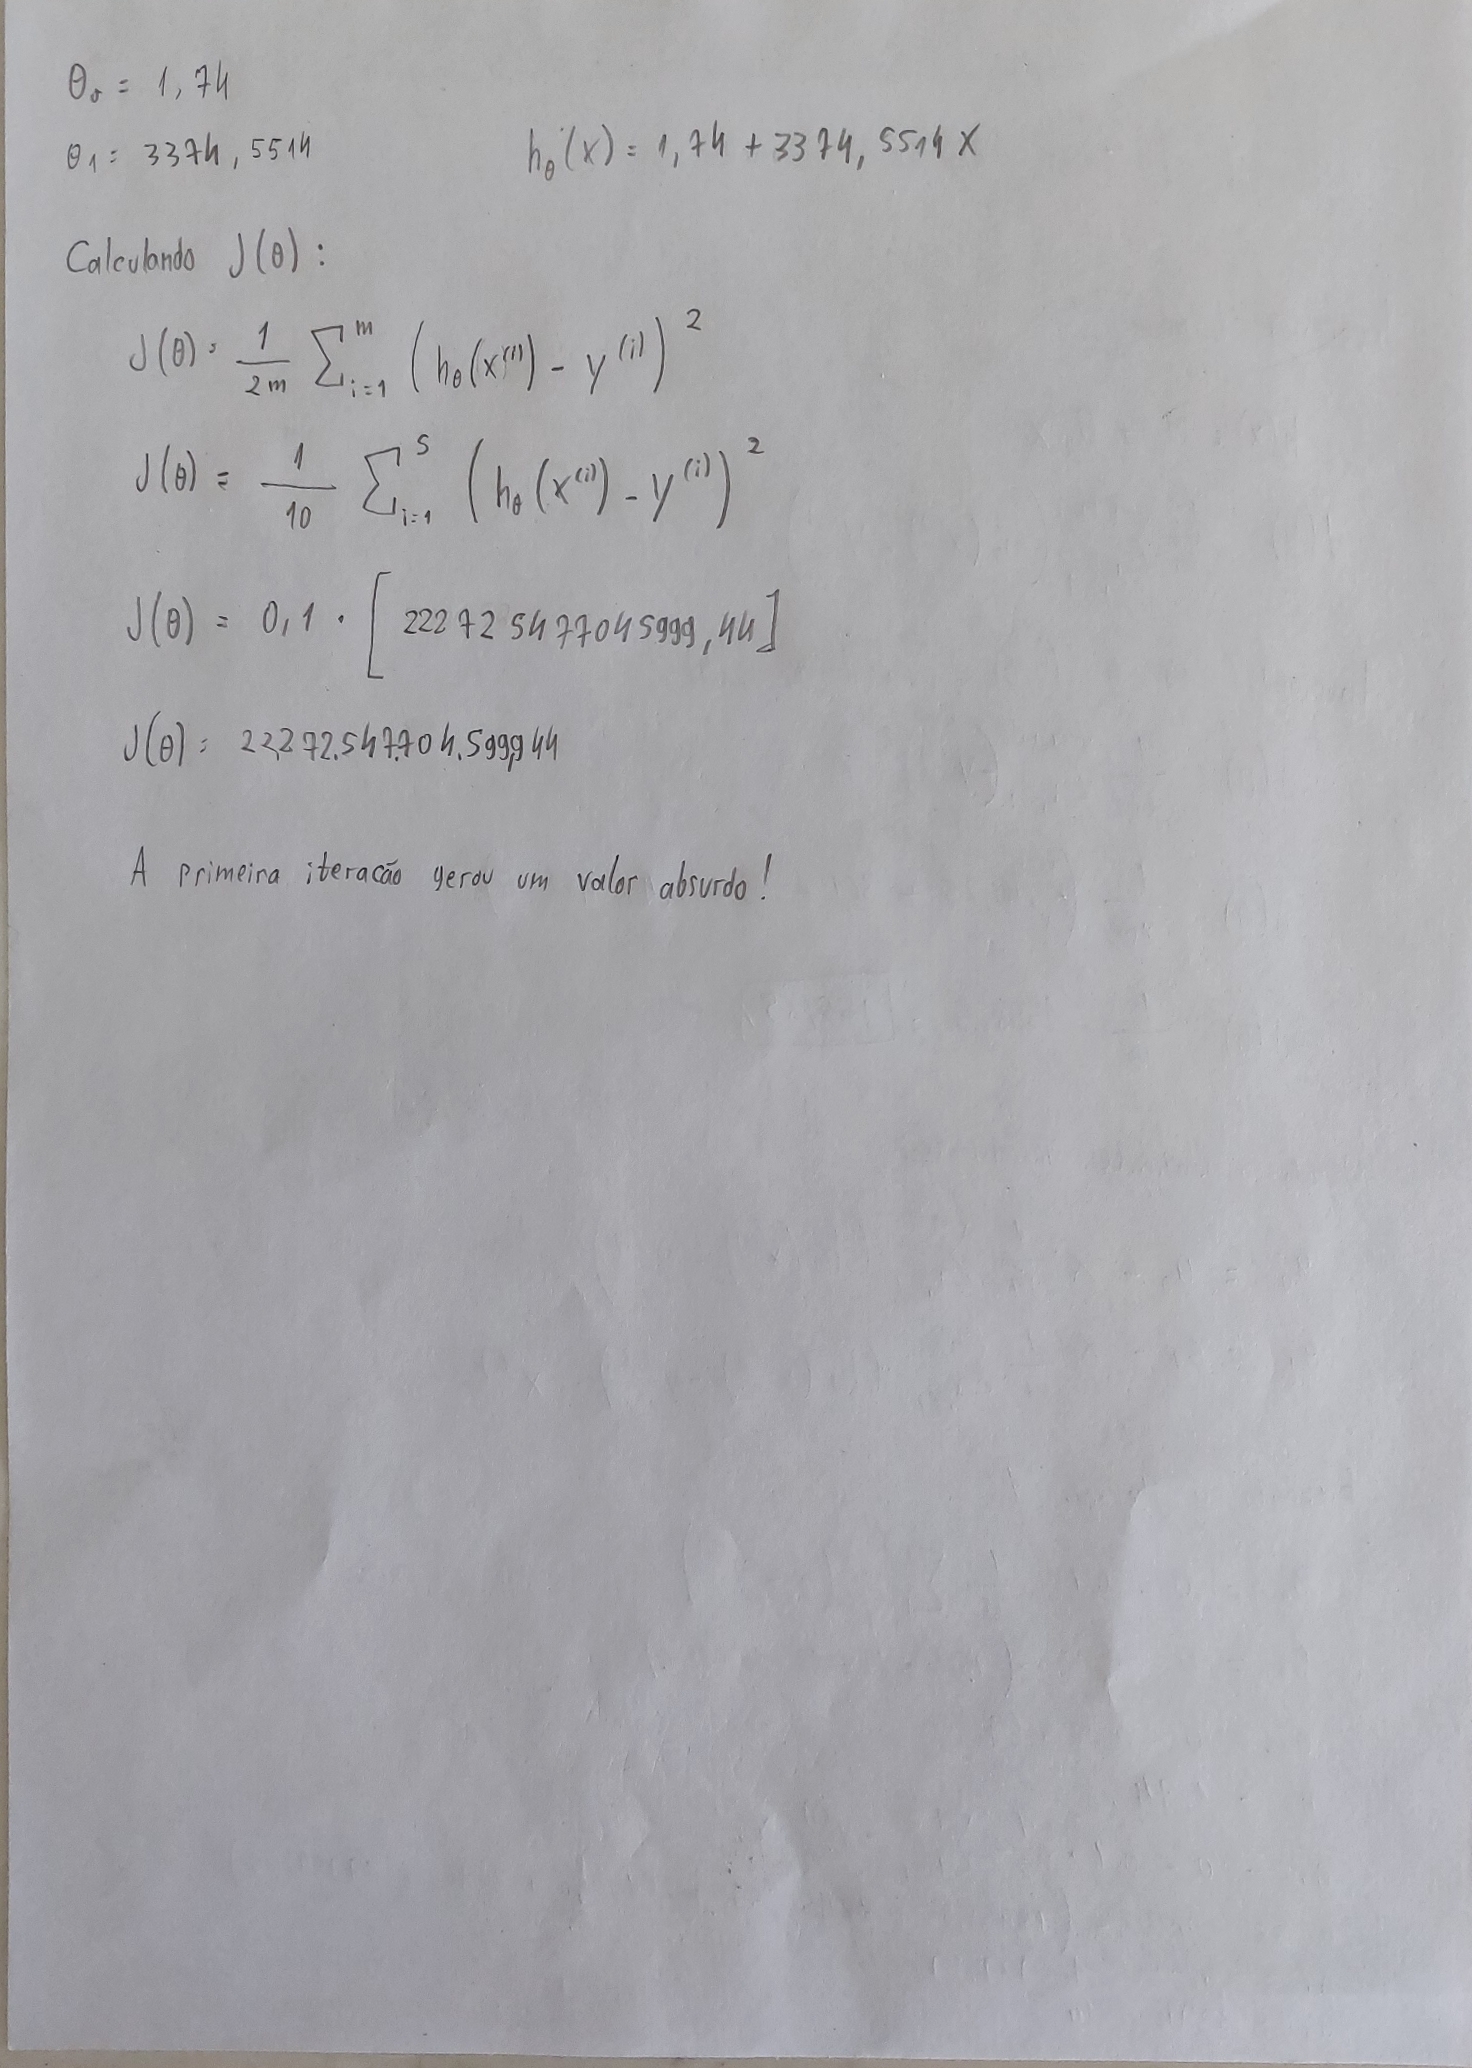 θ₀ = 1,74
θ₁ = 3374,5514
hθ(x) = 1,74 + 3374,5514 X
Calculando J(θ):
J(θ) = 1/2m ∑ᵢ₌₁ᵐ (hθ(x⁽ⁱ⁾) - y⁽ⁱ⁾)²
J(θ) = 1/10 ∑ᵢ₌₁⁵ (hθ(x⁽ⁱ⁾) - y⁽ⁱ⁾)²
J(θ) = 0,1 · [222725477045999,44]
J(θ) = 22.272.547.704.599,944
A primeira iteracão gerou um valor absurdo!